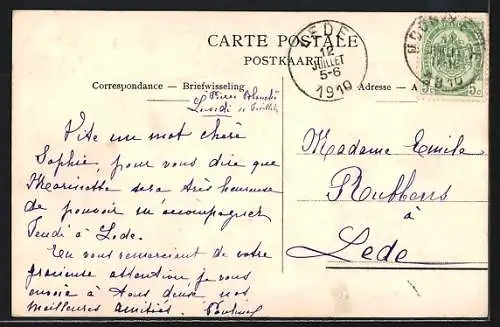 CARTE POSTALE
POSTKAART
LEDE
12
JUILLET
5-6
1910
1910
5c
Correspondance — Briefwisseling
Adresse — A
Lundi
Vite un mot chère
Sophie, pour vous dire que
Marinette sera très heureuse
de pouvoir m'accompagner
Jeudi à Lede.
En vous remerciant de votre
gracieuse attention je vous
envoie à tous deux nos
meilleures amitiés.
Madame Emile
Rubbens
à
Lede